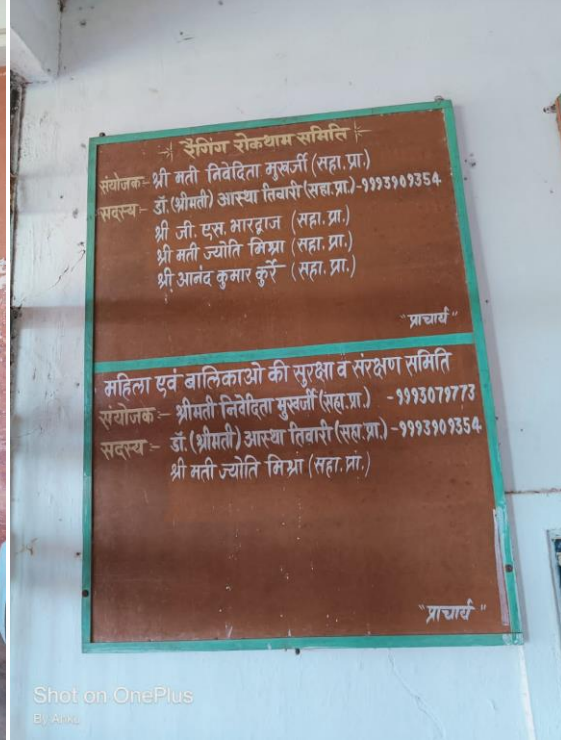 रैगिंग रोकथाम समिति
संयोजक - श्री मती निवेदिता मुखर्जी (सहा. प्रा.)
सदस्य :- डॉ. (श्रीमती) आस्था तिवारी (सहा. प्रा.) - 9993909354
श्री जी. एस. भारद्वाज (सहा. प्रा.)
श्री मती ज्योति मिश्रा (सहा. प्रा.)
श्री आनंद कुमार कुर्रे (सहा. प्रा.)
"प्राचार्य"
महिला एवं बालिकाओ की सुरक्षा व संरक्षण समिति
संयोजक :- श्रीमती निवेदिता मुखर्जी (सहा. प्रा.) - 9993079773
सदस्य :- डॉ. (श्रीमती) आस्था तिवारी (सहा. प्रा.) - 9993909354
श्री मती ज्योति मिश्रा (सहा. प्रां.)
"प्राचार्य"
Shot on OnePlus